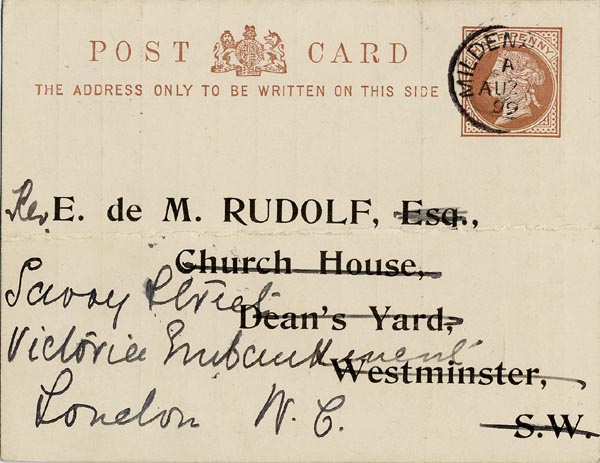 POST CARD
THE ADDRESS ONLY TO BE WRITTEN ON THIS SIDE
PENNY
MILDEN
A
AU
99
Rev E. de M. RUDOLF, Esq.,
Church House,
Savoy Street
Dean's Yard,
Victoria Embankment
Westminster,
London W.C.
S.W.